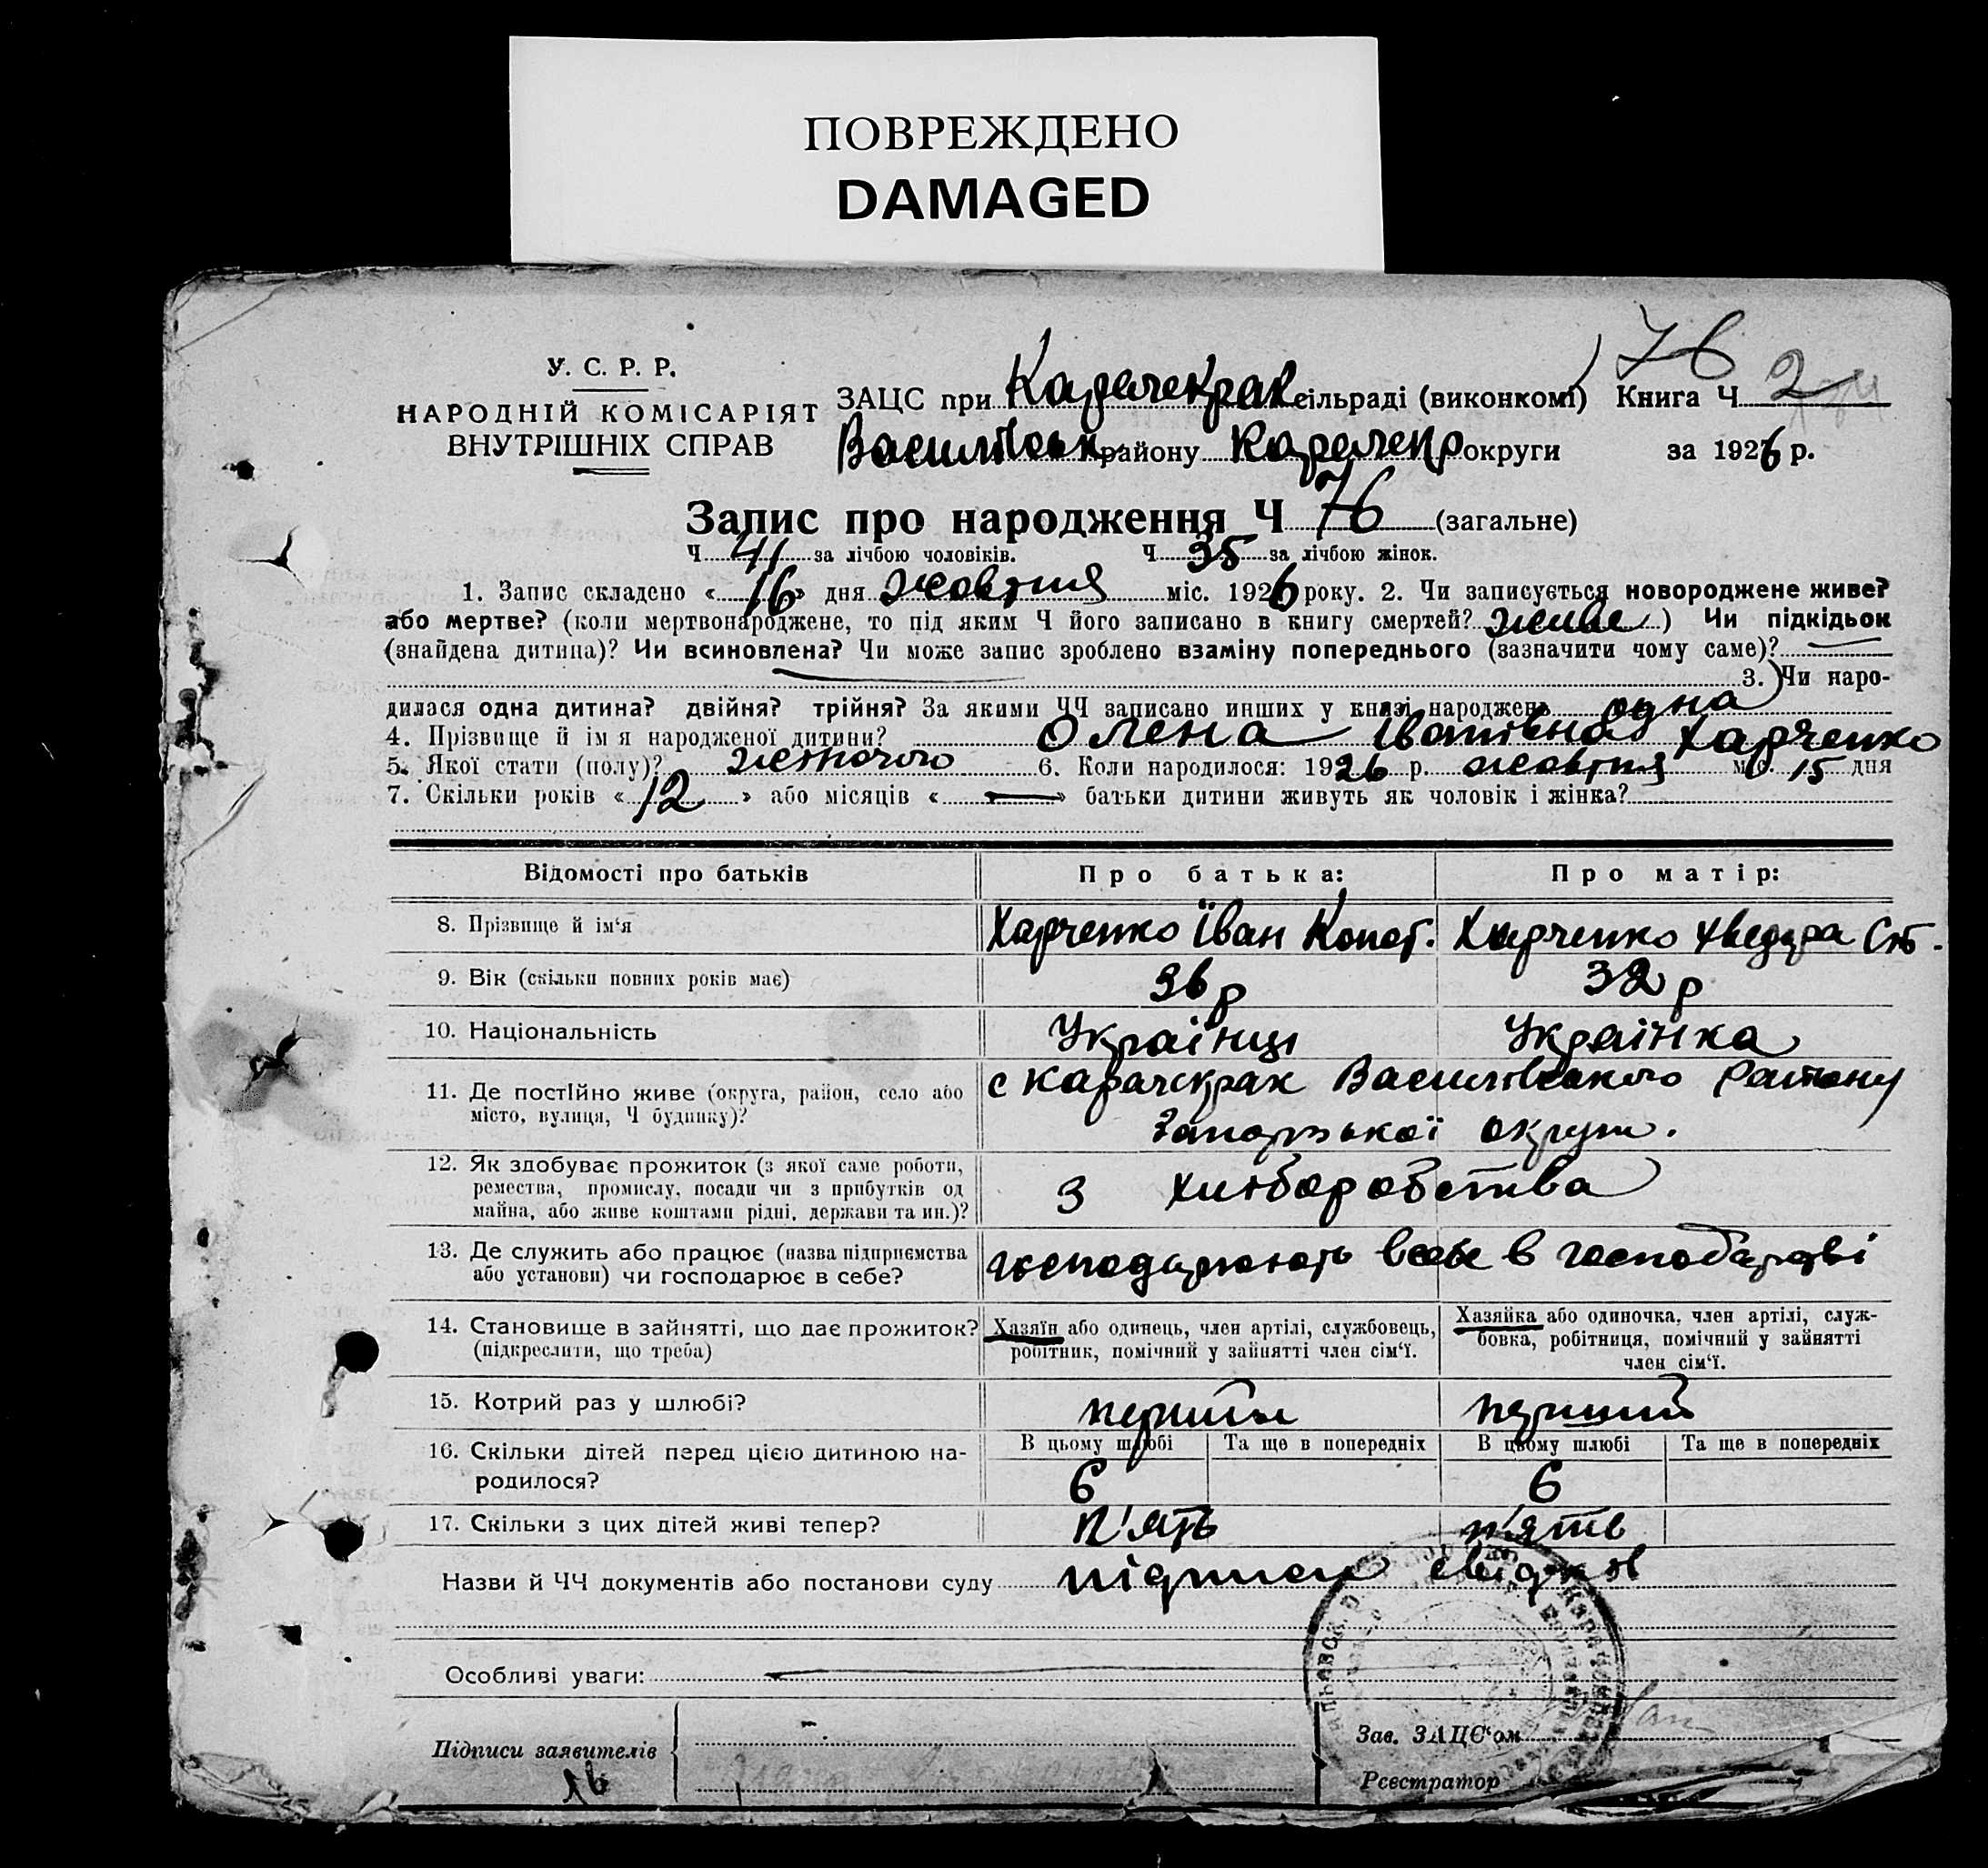 ПОВРЕЖДЕНО
DAMAGED
76
У. С. Р. Р.
НАРОДНІЙ КОМІСАРІЯТ
ВНУТРІШНІХ СПРАВ
ЗАЦС при Карачекрак сільраді (виконкомі) Книга Ч. 2
Василівськ району округи за 1926 р.
Запис про народження Ч 76 (загальне)
Ч 41 за лічбою чоловіків. Ч 35 за лічбою жінок.
1. Запис складено «16» дня жовтня міс. 1926 року. 2. Чи записується новороджене живе?
або мертве? (коли мертвонароджене, то під яким Ч його записано в книгу смертей? живе) Чи підкідьок
(знайдена дитина)? Чи всиновлена? Чи може запис зроблено взаміну попереднього (зазначити чому саме)?
3. Чи наро-
дилася одна дитина? двійня? трійня? За якими ЧЧ записано инших у книзі народжень одна
4. Прізвище й ім я народженої дитини? Олена Іванівна Харченко
5. Якої стати (полу)? жіночого 6. Коли народилося: 1926 р. жовтня м. 15 дня
7. Скільки років «12» або місяців « — » батьки дитини живуть як чоловік і жінка?
Відомості про батьків Про батька: Про матір:
8. Прізвище й ім'я Харченко Іван Конот. Харченко Хведора Ст.
9. Вік (скільки повних років має) 36 р 32 р
10. Національність Українці Українка
11. Де постійно живе (округа, район, село або
місто, вулиця, Ч будинку)?
с Карачекрак Василівського Району
Запорізької округи.
12. Як здобуває прожиток (з якої саме роботи,
ремества, промислу, посади чи з прибутків од
майна, або живе коштами рідні, держави та ин.)?
З хліборобства
13. Де служить або працює (назва підприємства
або установи) чи господарює в себе?
господарюють в себе в господарстві
14. Становище в зайнятті, що дає прожиток?
(підкреслити, що треба)
Хазяїн або одинець, член артілі, службовець,
робітник, помічний у зайнятті член сім'ї.
Хазяйка або одиночка, член артілі, служ-
бовка, робітниця, помічний у зайнятті
член сім'ї.
15. Котрий раз у шлюбі? перший перший
16. Скільки дітей перед цією дитиною на-
родилося?
В цьому шлюбі Та ще в попередніх В цьому шлюбі Та ще в попередніх
6 6
17. Скільки з цих дітей живі тепер? п'ять п'ять
Назви й ЧЧ документів або постанови суду підписи свідків
Особливі уваги:
Підписи заявителів
16
Зав. ЗАЦС'ом
Реєстратор